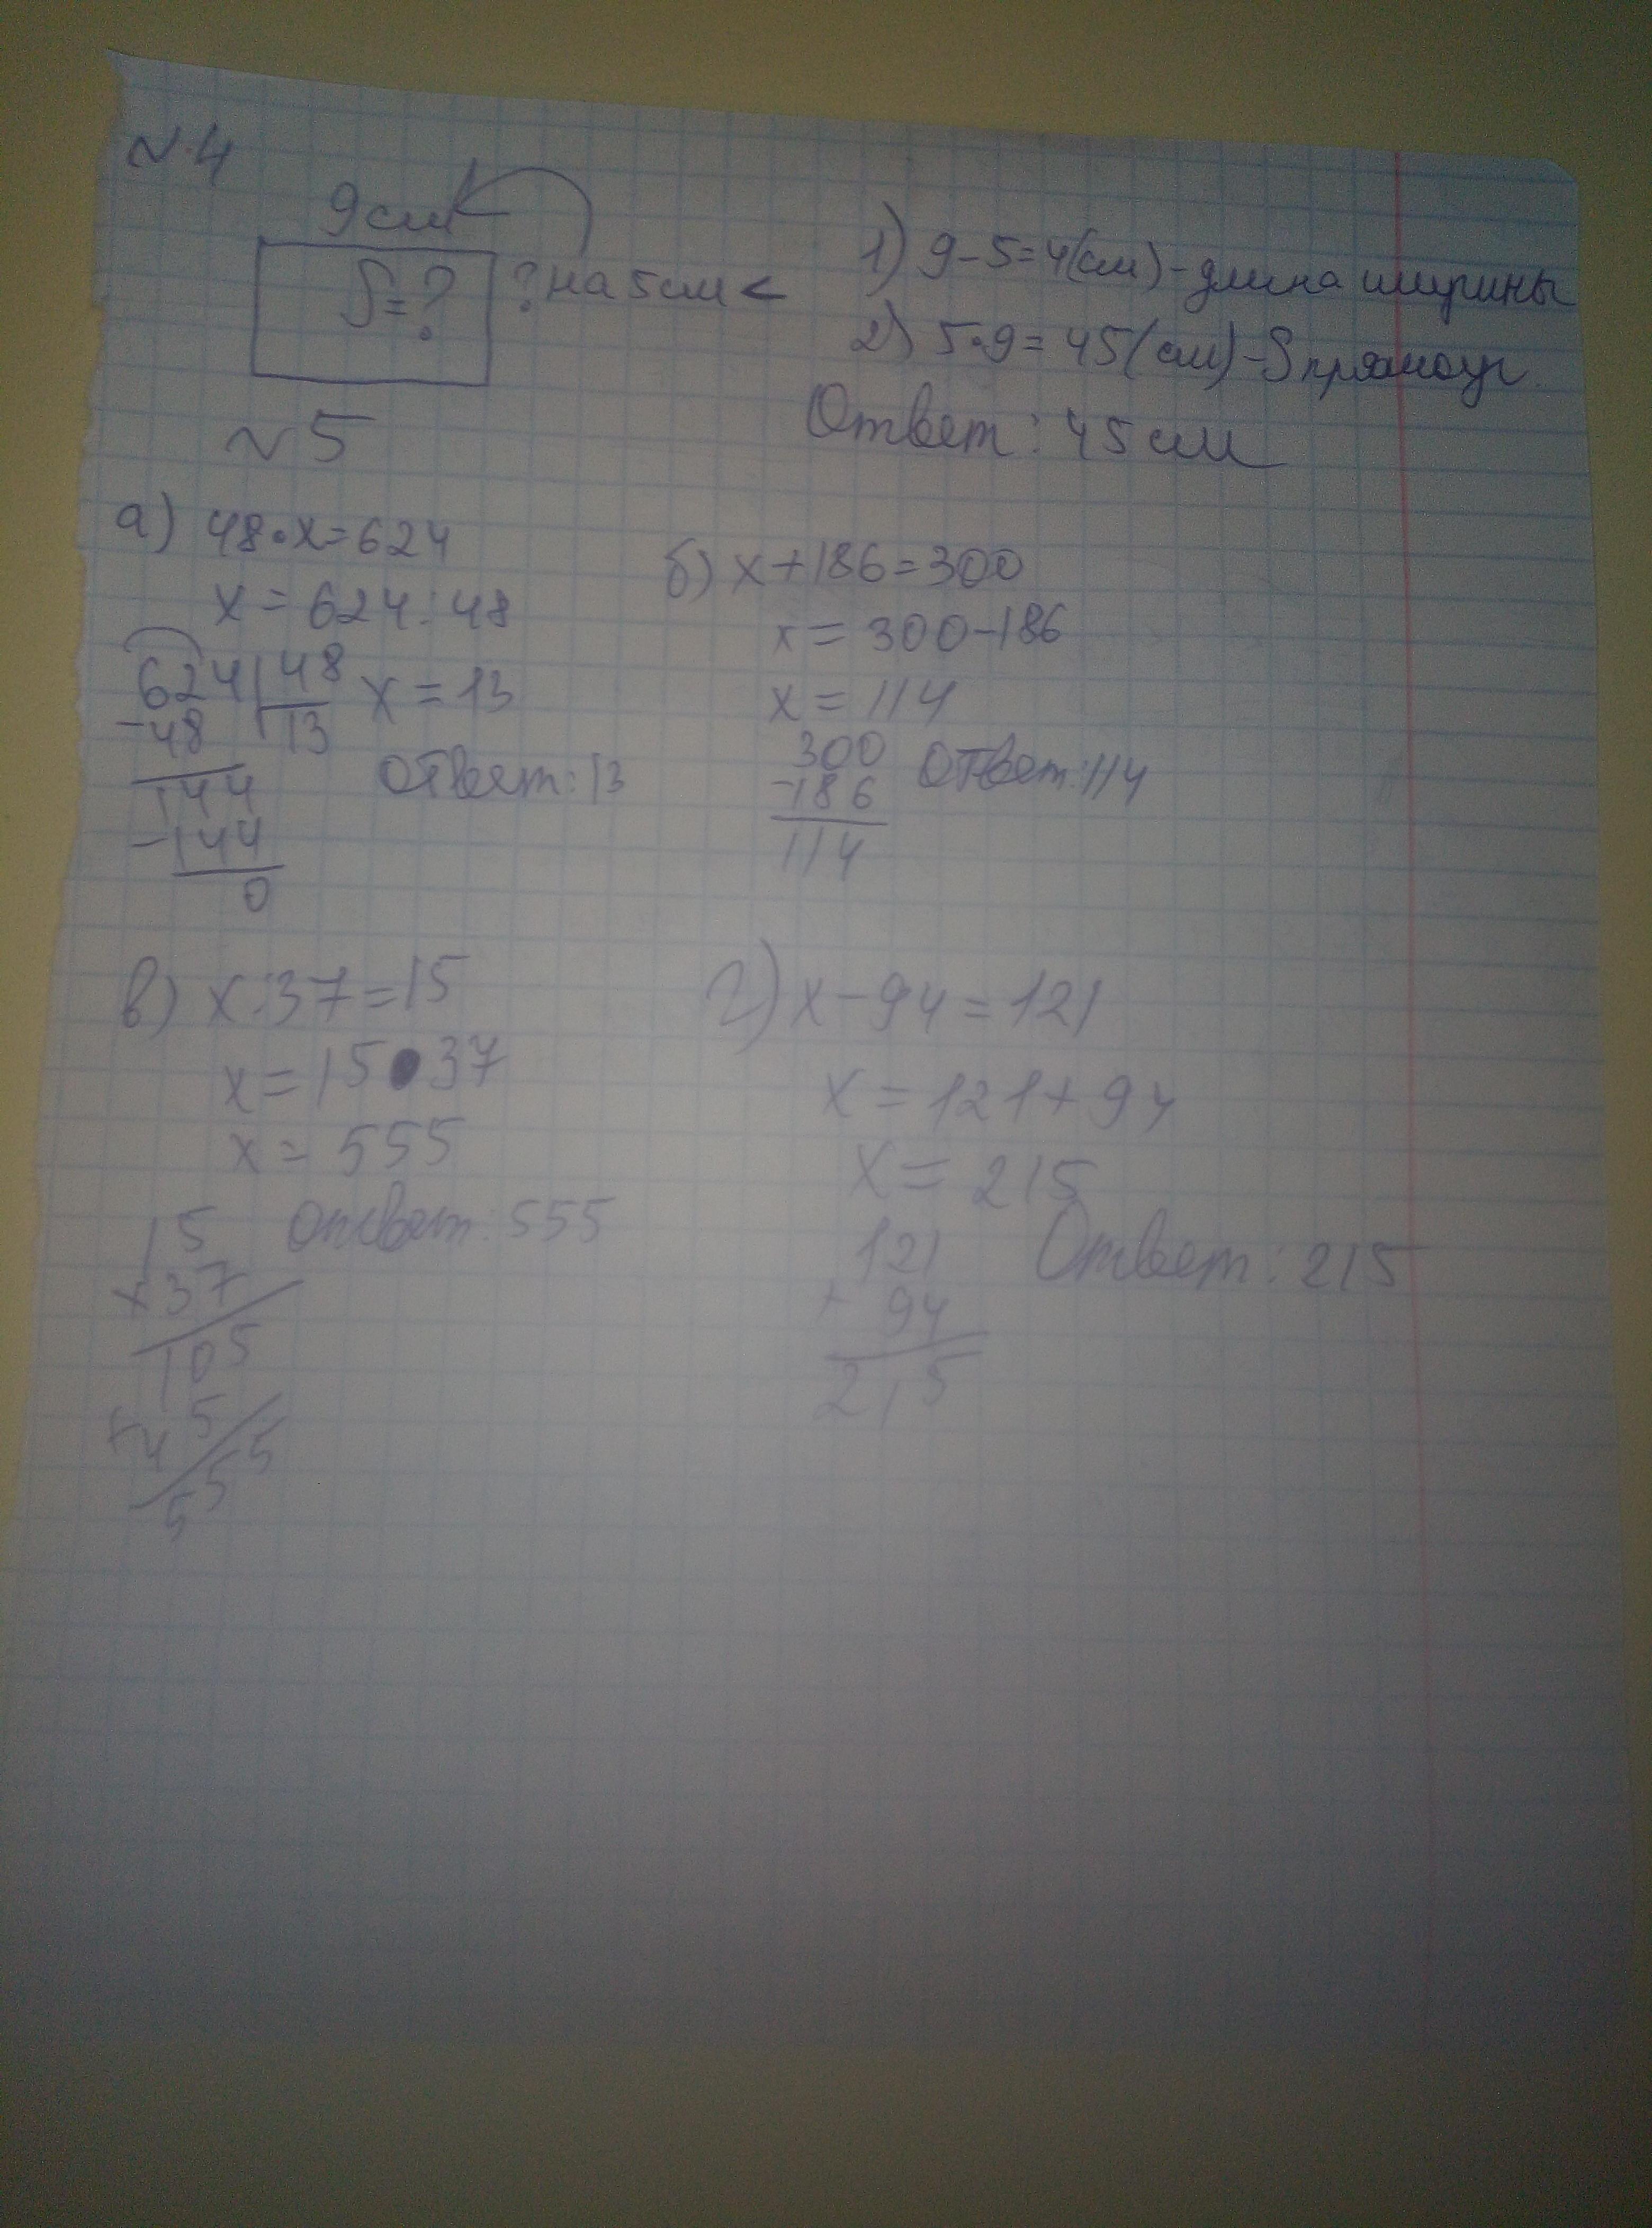 №4
9см
S=?
? на 5см <
1) 9-5=4(см)-длина ширины
2) 5•9=45(см)-Sпрямоуг.
Ответ: 45см
№5
а) 48•x=624
x=624:48
x=13
624 48
-48 13
144
-144
0
Ответ: 13
б) x+186=300
x=300-186
x=114
300
-186
114
Ответ: 114
в) x:37=15
x=15•37
x=555
15
x37
105
+45
555
Ответ: 555
г) x-94=121
x=121+94
x=215
121
+ 94
215
Ответ: 215